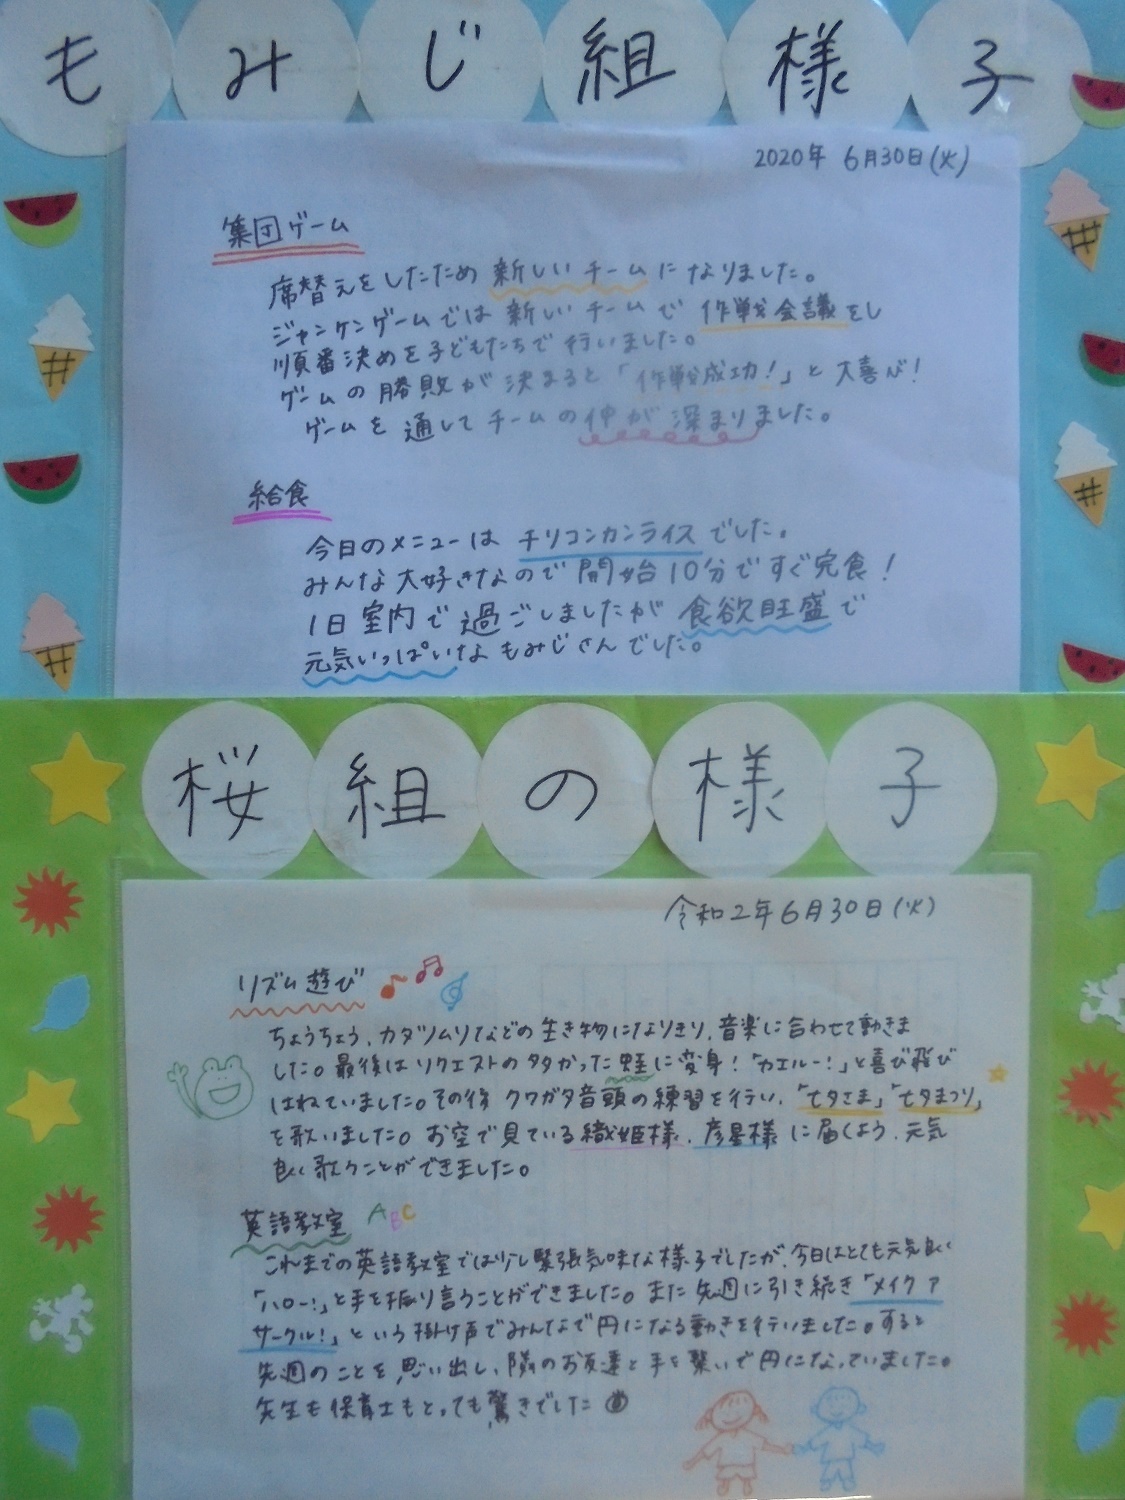 もみじ組様子
2020年 6月30日(火)
集団ゲーム
席替えをしたため 新しいチームになりました。
ジャンケンゲームでは新しいチームで作戦会議をし
順番決めを子どもたちで行いました。
ゲームの勝敗が決まると「作戦成功!」と大喜び!
ゲームを通してチームの仲が深まりました。
給食
今日のメニューは チリコンカンライスでした。
みんな大好きなので開始10分ですぐ完食!
1日室内で過ごしましたが食欲旺盛で
元気いっぱいなもみじさんでした。
桜組の様子
令和2年6月30日(火)
リズム遊び
ちょうちょう、カタツムリなどの生き物になりきり、音楽に合わせて動きま
した。最後はリクエストの多かった蛙に変身!「カエルー!」と喜び飛び
はねていました。その後クワガタ音頭の練習を行い、「七夕さま」「七夕まつり」
を歌いました。お空で見ている織姫様、彦星様に届くよう、元気
良く歌うことができました。
英語教室 ABC
これまでの英語教室では少し緊張気味な様子でしたが、今日はとても元気良く
「ハロー!」と手を振り言うことができました。また先週に引き続き「メイクア
サークル!」という掛け声でみんなで円になる動きを行いました。すると
先週のことを思い出し、隣のお友達と手を繋いで円になっていました。
先生も保育士もとっても驚きでした